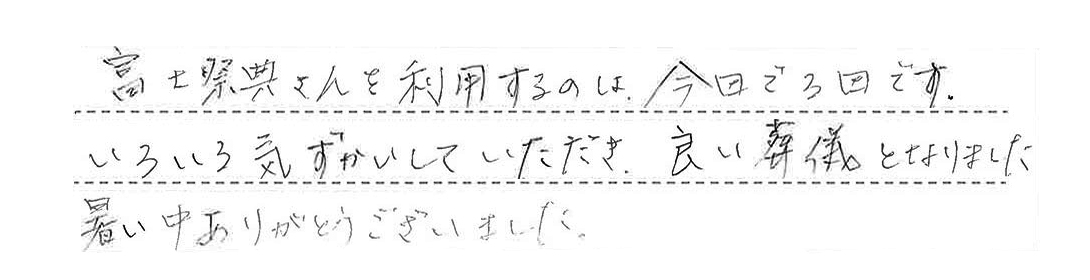 富士祭典さんを利用するのは、今回で3回です。
いろいろ気ずかいしていただき、良い葬儀となりました
暑い中ありがとうございました。